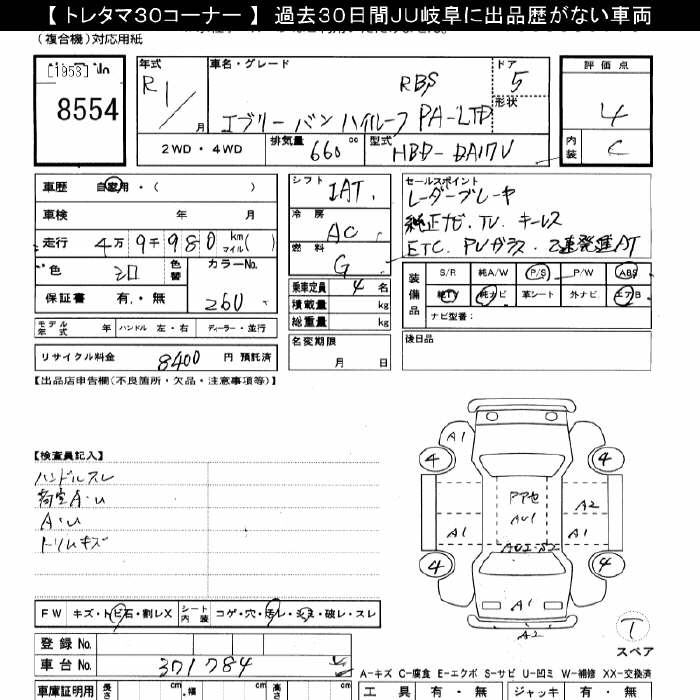 【 トレタマ30コーナー 】 過去30日間JU岐阜に出品歴がない車両
(複合機)対応用紙
[1953]
8554
年式 R1／ 月
車名・グレード RBS
エブリー バン ハイルーフ PA-LTD
ドア 5
形状
評価点 4
内装 C
2WD ・ 4WD
排気量 660 cc
型式 HBD-DA17V
車歴 自家用・( )
車検 年 月
走行 4万 9千 980 km マイル( )
色 シロ 色替
カラーNo. 26U
保証書 有.・無
モデル年式 年 ハンドル 左・右 ディーラー・並行
リサイクル料金 8400 円 預託済
シフト IAT.
冷房 AC
燃料 G
乗車定員 4 名
積載量 kg
総重量 kg
名変期限 月 日
セールスポイント
レーダーブレーキ
純正ナビ. TV. キーレス
ETC. PVガラス. 2連発進AT
装備品
S/R 純A/W P/S P/W ABS
純TV 純ナビ 革シート 外ナビ エアB
ナビ型番：
後日品
【出品店申告欄(不良箇所・欠品・注意事項等)】
【検査員記入】
ハンドルスレ
荷室A・U
A・U
トリムキズ
FW キズ・トビ石・割レX
シート内装 コゲ・穴・汚レ・シミ・破レ・スレ
登録 No.
車台 No. 371784
車庫証明用 長さ cm 幅 cm 高さ cm
A1
4 4
A2
A U1
A1 A1
4 4
A1
A2
T
スペア
A−キズ C−腐食 E−エクボ S−サビ U−凹ミ W−補修 XX−交換済
工具 有・無 ジャッキ 有・無